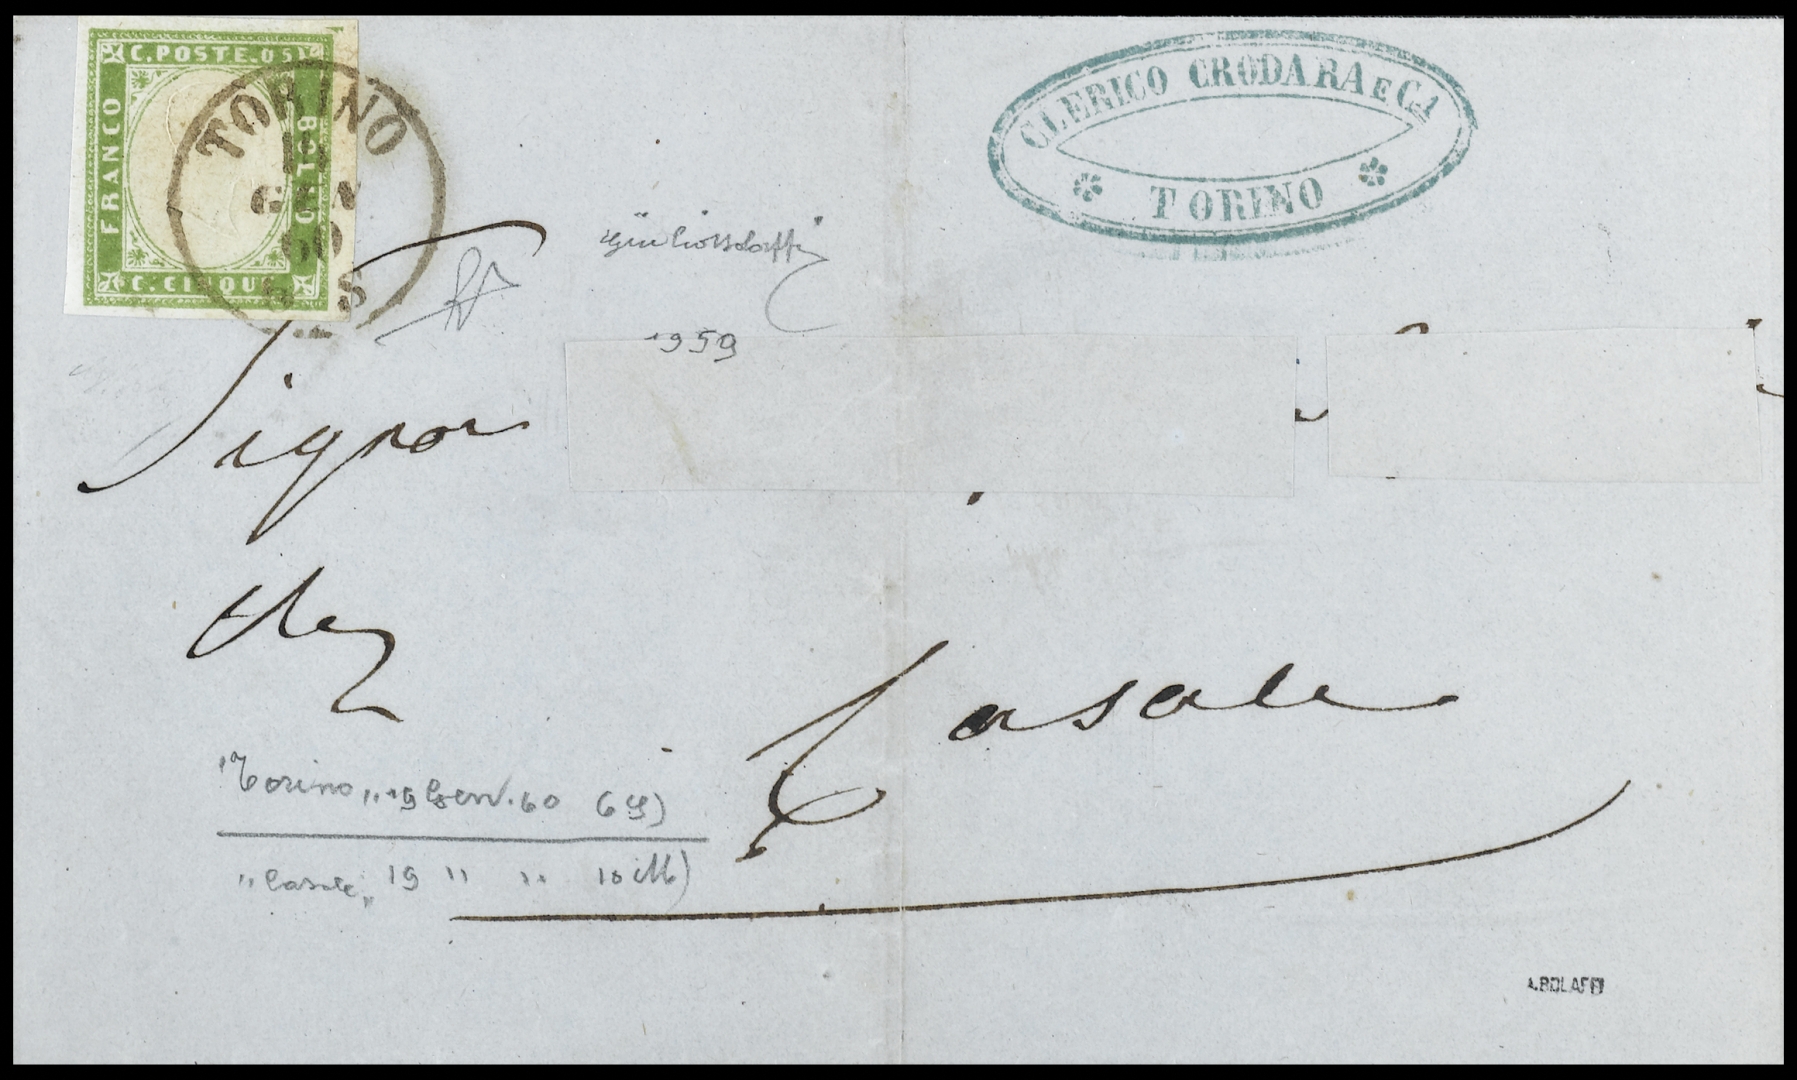 C. POSTE. 05
FRANCO
BOLLO
C. CINQUE
TORINO
GEN
60
CLERICO CRODARA E CA
TORINO
1959
Signor
Casale
"Torino" 19 Genn. 60 (6S)
"Casale" 19 " "
A. BOLAFFI